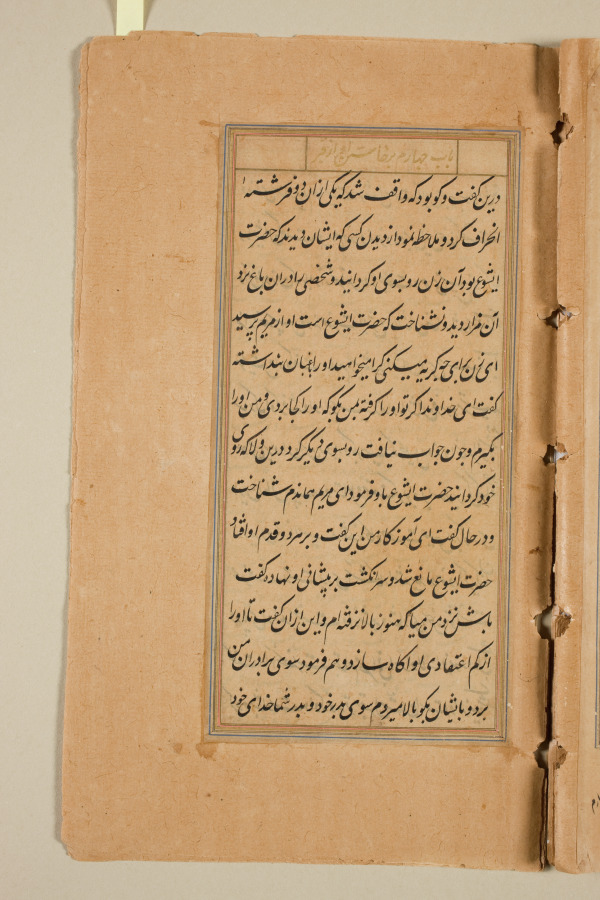 باب چهارم برخاستن او از قبر
درین گفت و کو بود که واقف شد که یکی ازان دو فرشته
انحراف کرد و ملاحظه نمود از دیدن کسی که ایشان دیدند که حضرت
ایشوع بود آن زن رو بسوی او کردانید و شخصی را دران باغ نزد
آن مزار دید و نشناخت که حضرت ایشوع است او از مریم پرسید
ای زن برای چه کریه میکنی کرا میخواهید او را باغبان پنداشته
گفت ای خداوند اکر تو او را کرفته بمن بکو که او را کجا بردی و من او را
بگیرم و چون جواب نیافت رو بسوی دیگر کرد درین ولا که روی
خود کردانید حضرت ایشوع باو فرمود ای مریم هماندم شناخت
و در حال گفت ای آموزکار من این گفت و بر هر دو قدم او افتاد
حضرت ایشوع مانع شد و سر انکشت بر پیشانی او نهاد و گفت
باش نزد من میا که هنوز بالا نرفته ام و این ازان گفت تا او را
از کم اعتقادی او آکاه سازد و هم فرمود سوی برادران من
برو و بایشان بکو بالا میروم سوی پدر خود و پدر شما خدای خود